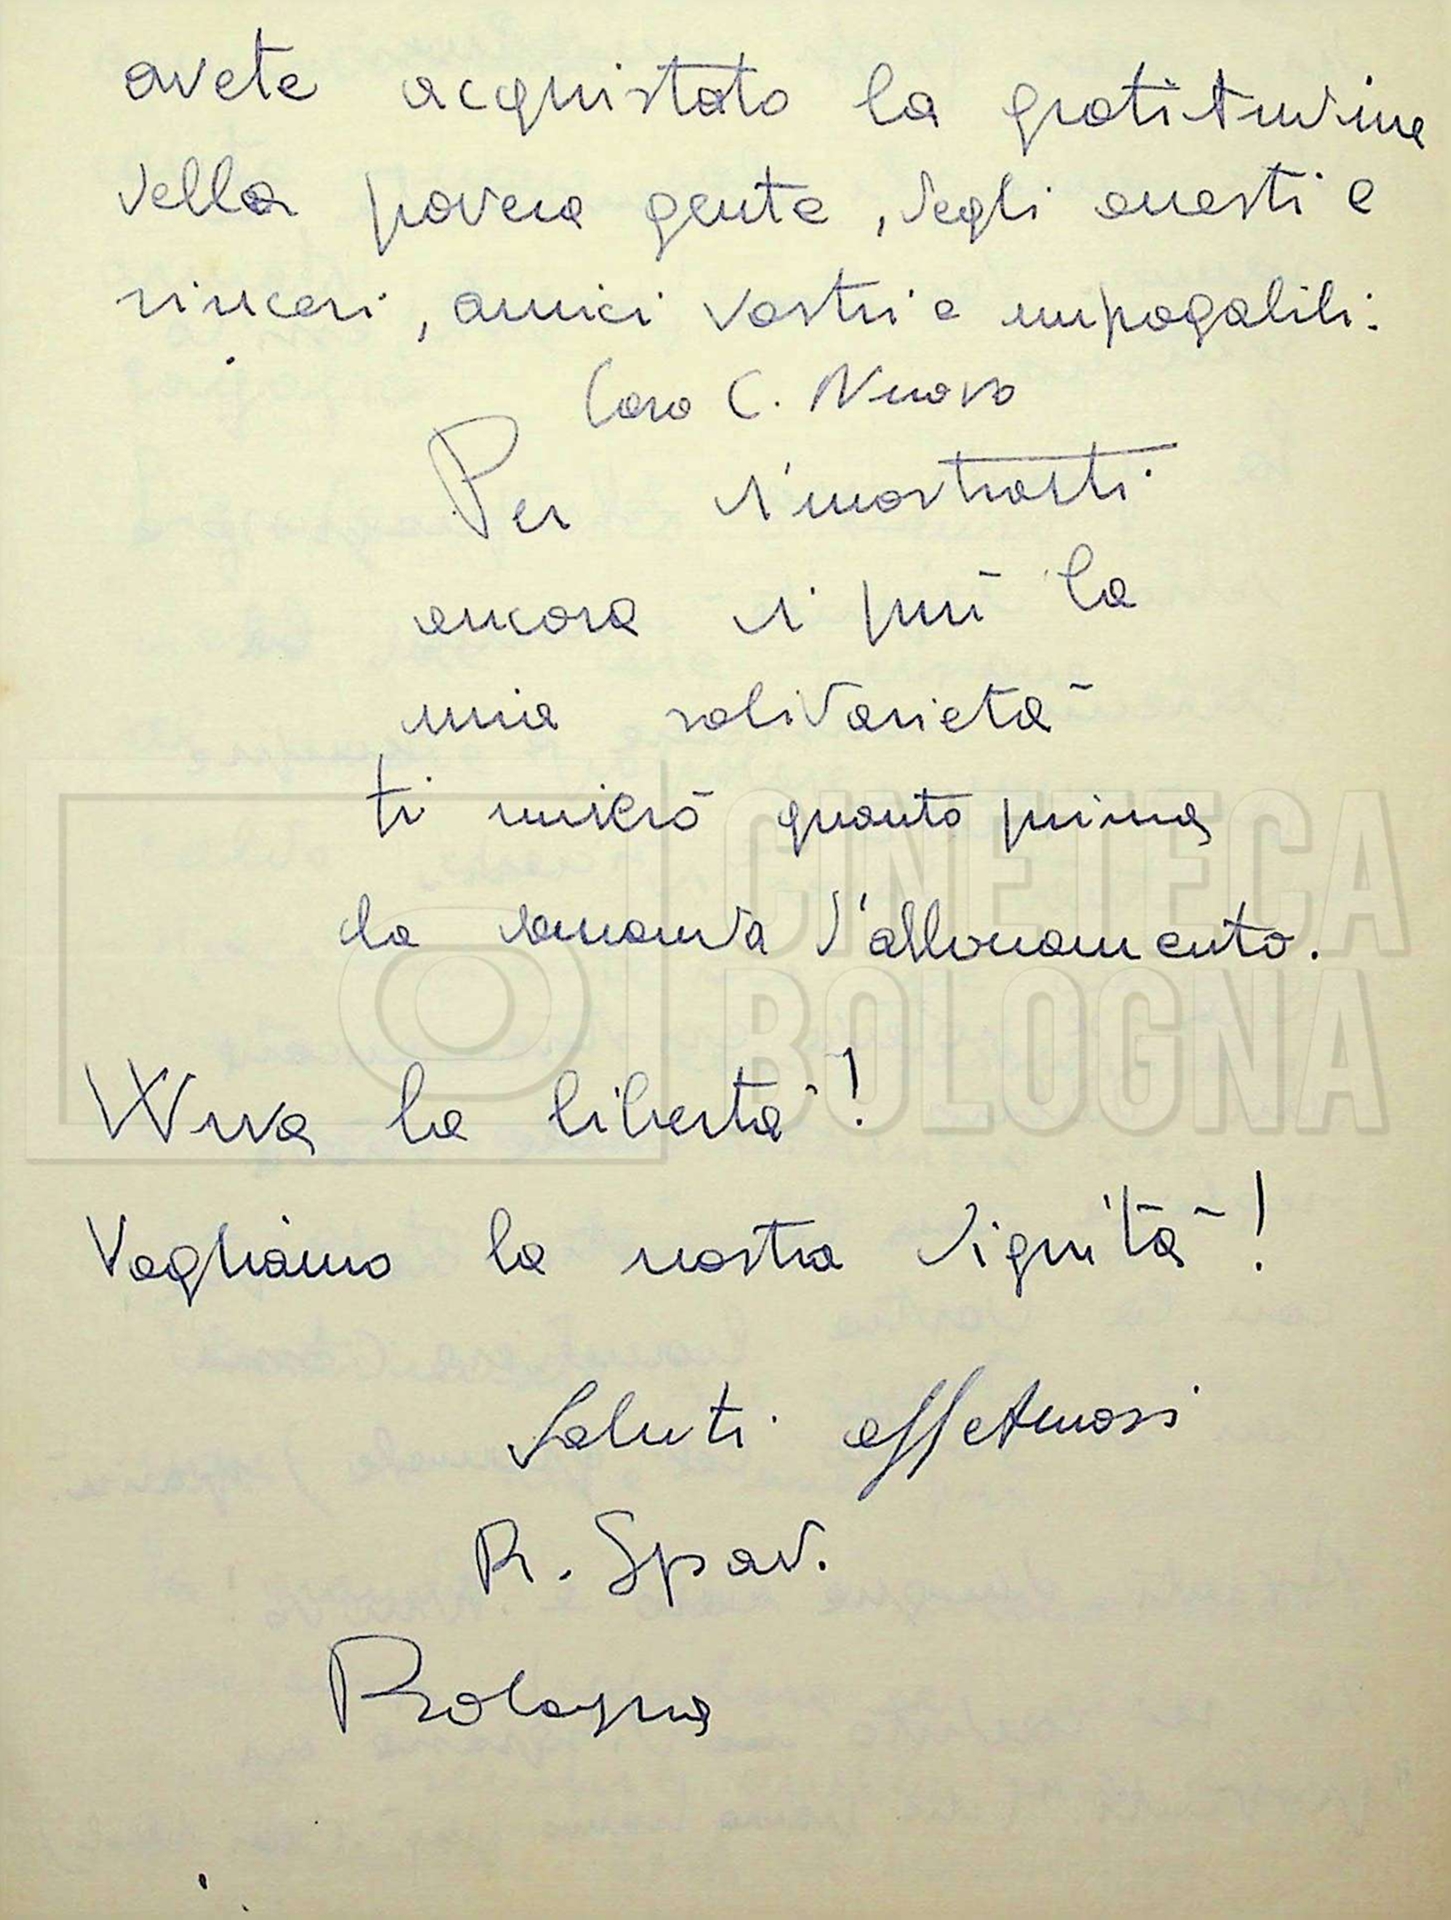 avete acquistato la gratitudine
della povera gente, degli onesti e
sinceri, amici vostri e impagabili.
Caro C. Nuovo
Per dimostrarti
ancora di più la
mia solidarietà
ti unirò quanto prima
la domanda l'abbonamento.
CINETECA
BOLOGNA
W viva la libertà!
Vogliamo la nostra dignità!
Saluti affettuosi
R. Spad.
Bologna